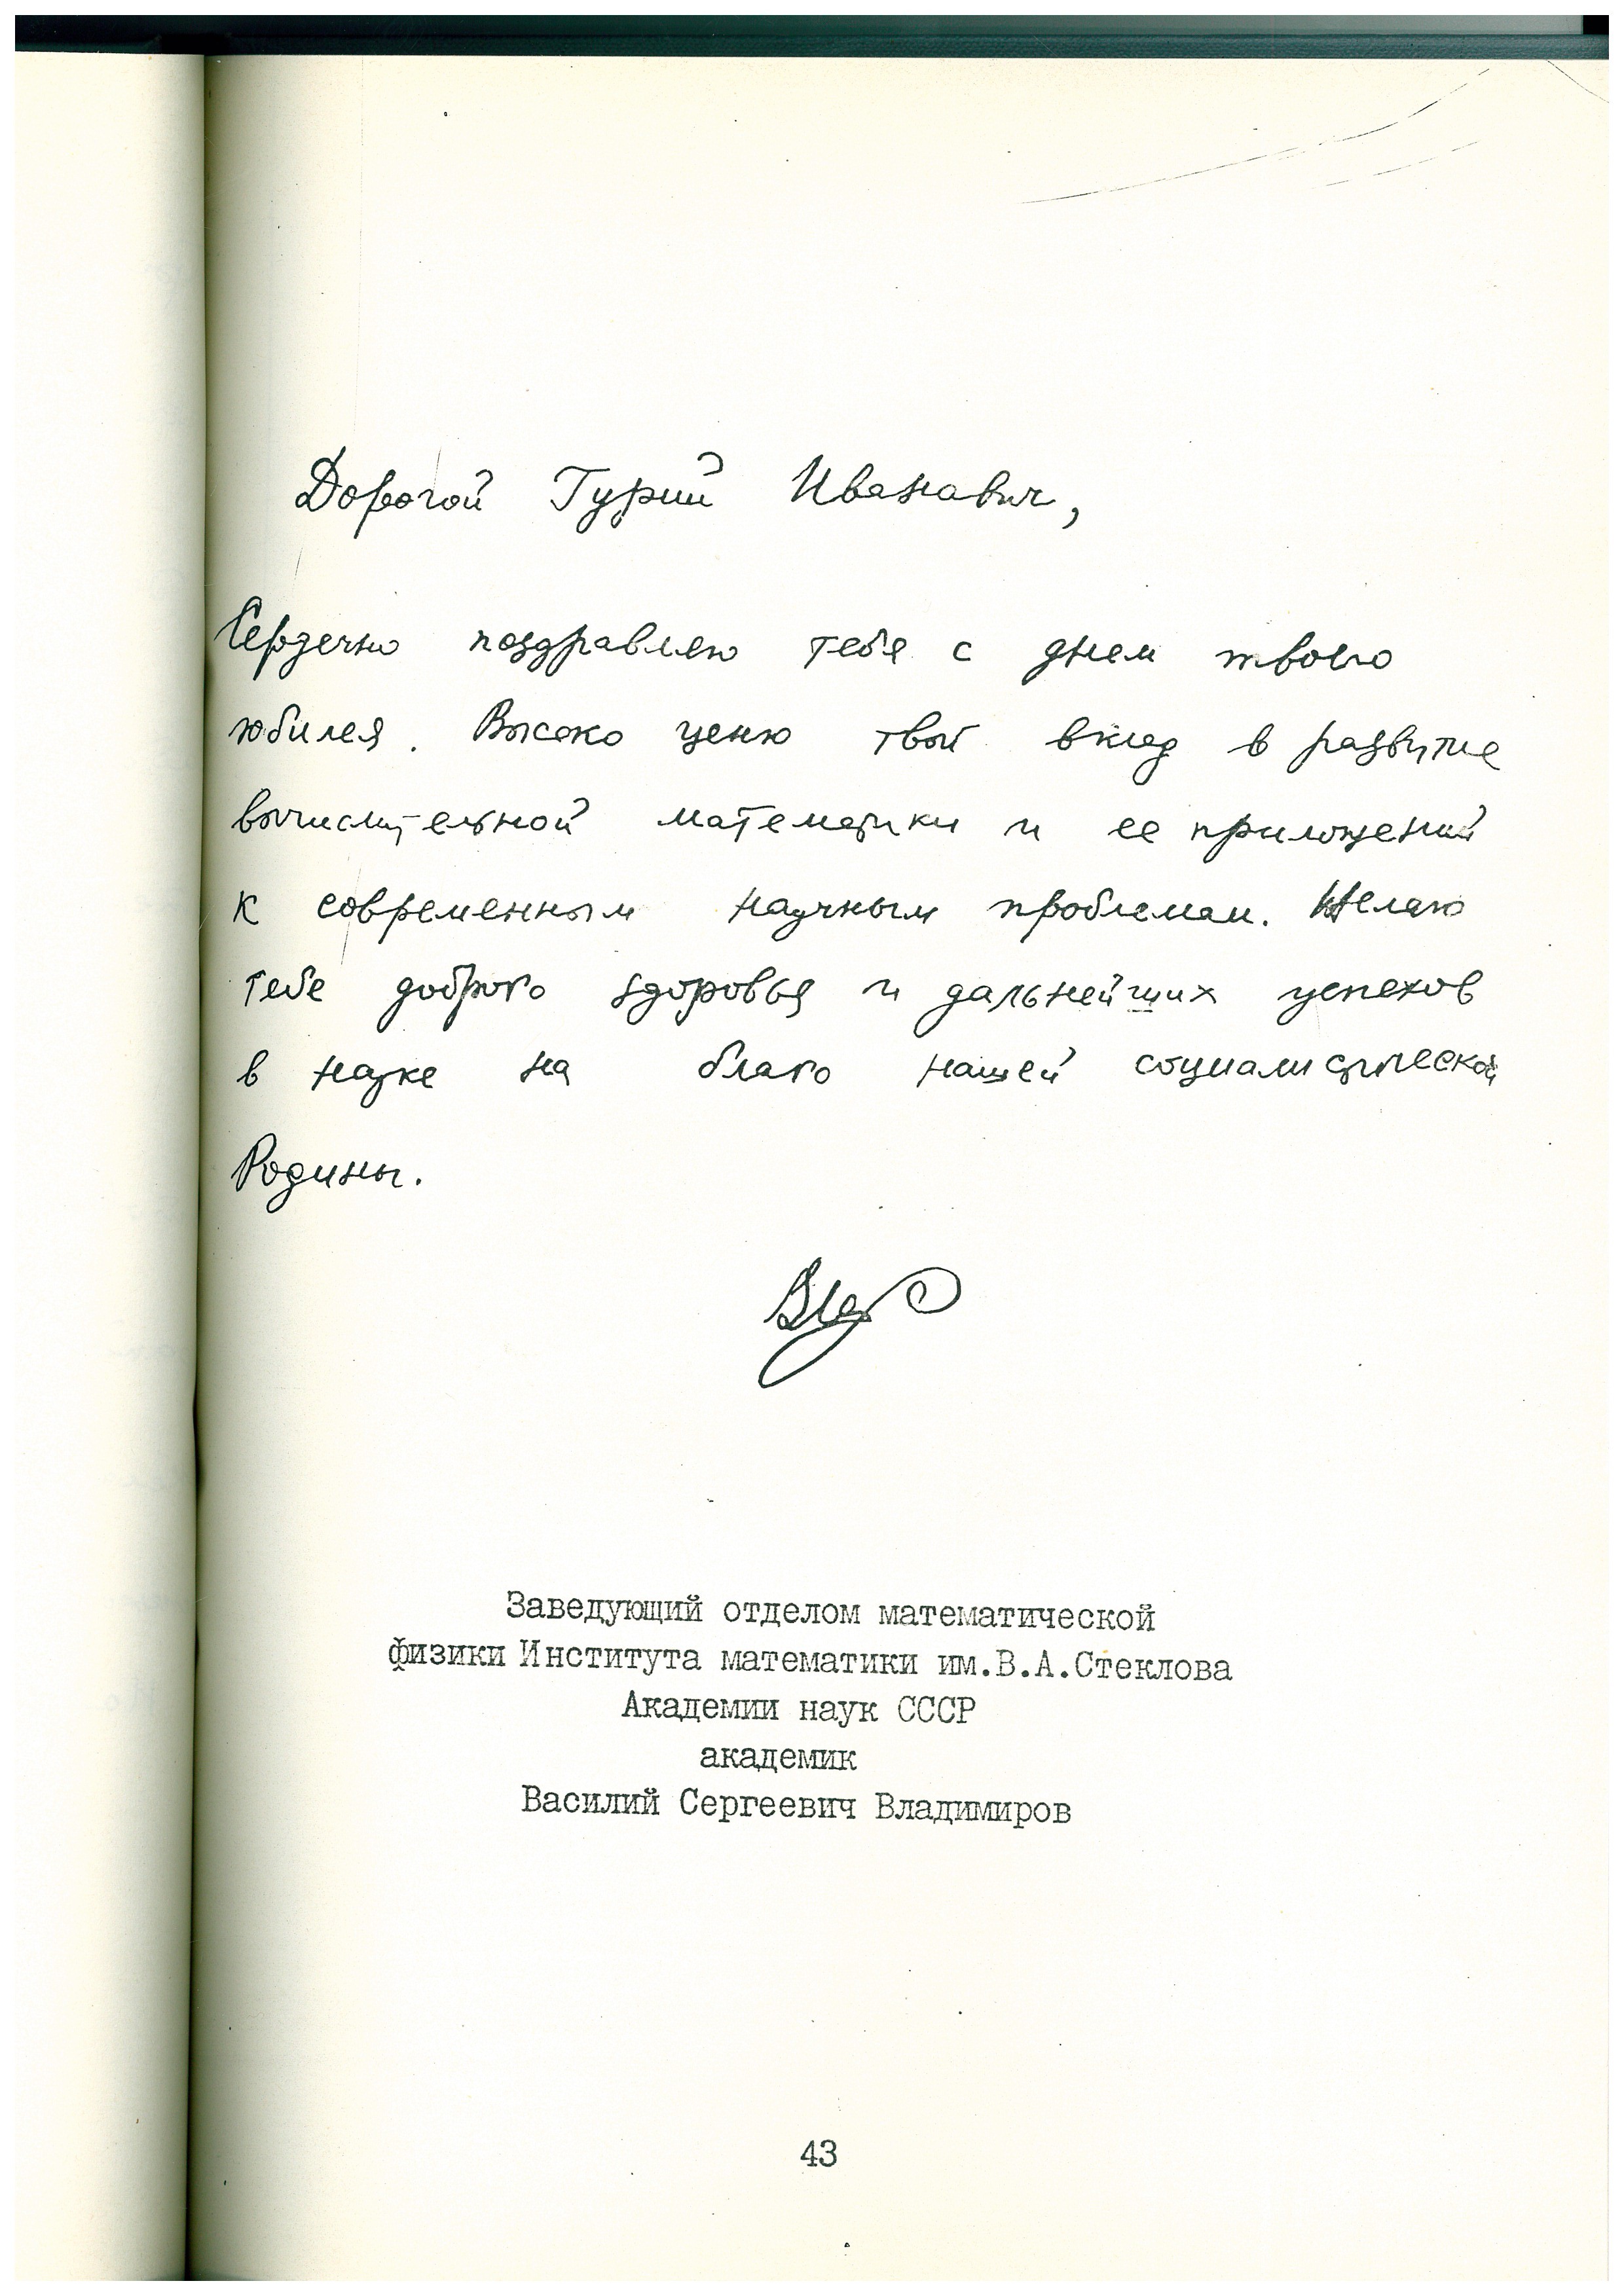 Дорогой Гурий Иванович,
Сердечно поздравляю тебя с днем твоего
юбилея. Высоко ценю твой вклад в развитие
вычислительной математики и ее приложений
к современным научным проблемам. Желаю
тебе доброго здоровья и дальнейших успехов
в науке на благо нашей социалистической
Родины.
Заведующий отделом математической
физики Института математики им.В.А.Стеклова
Академии наук СССР
академик
Василий Сергеевич Владимиров
43